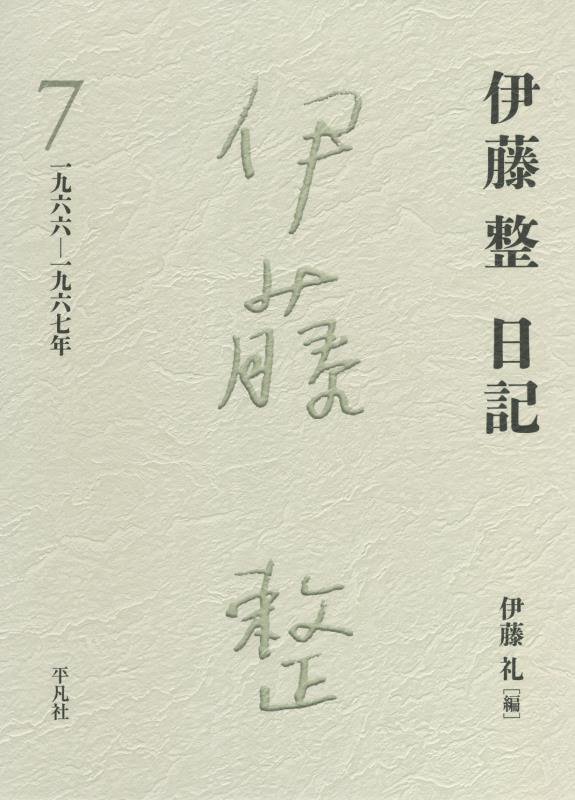 伊藤 整 日記
伊藤 礼[編]
伊藤整
7
一九六六―一九六七年
平凡社